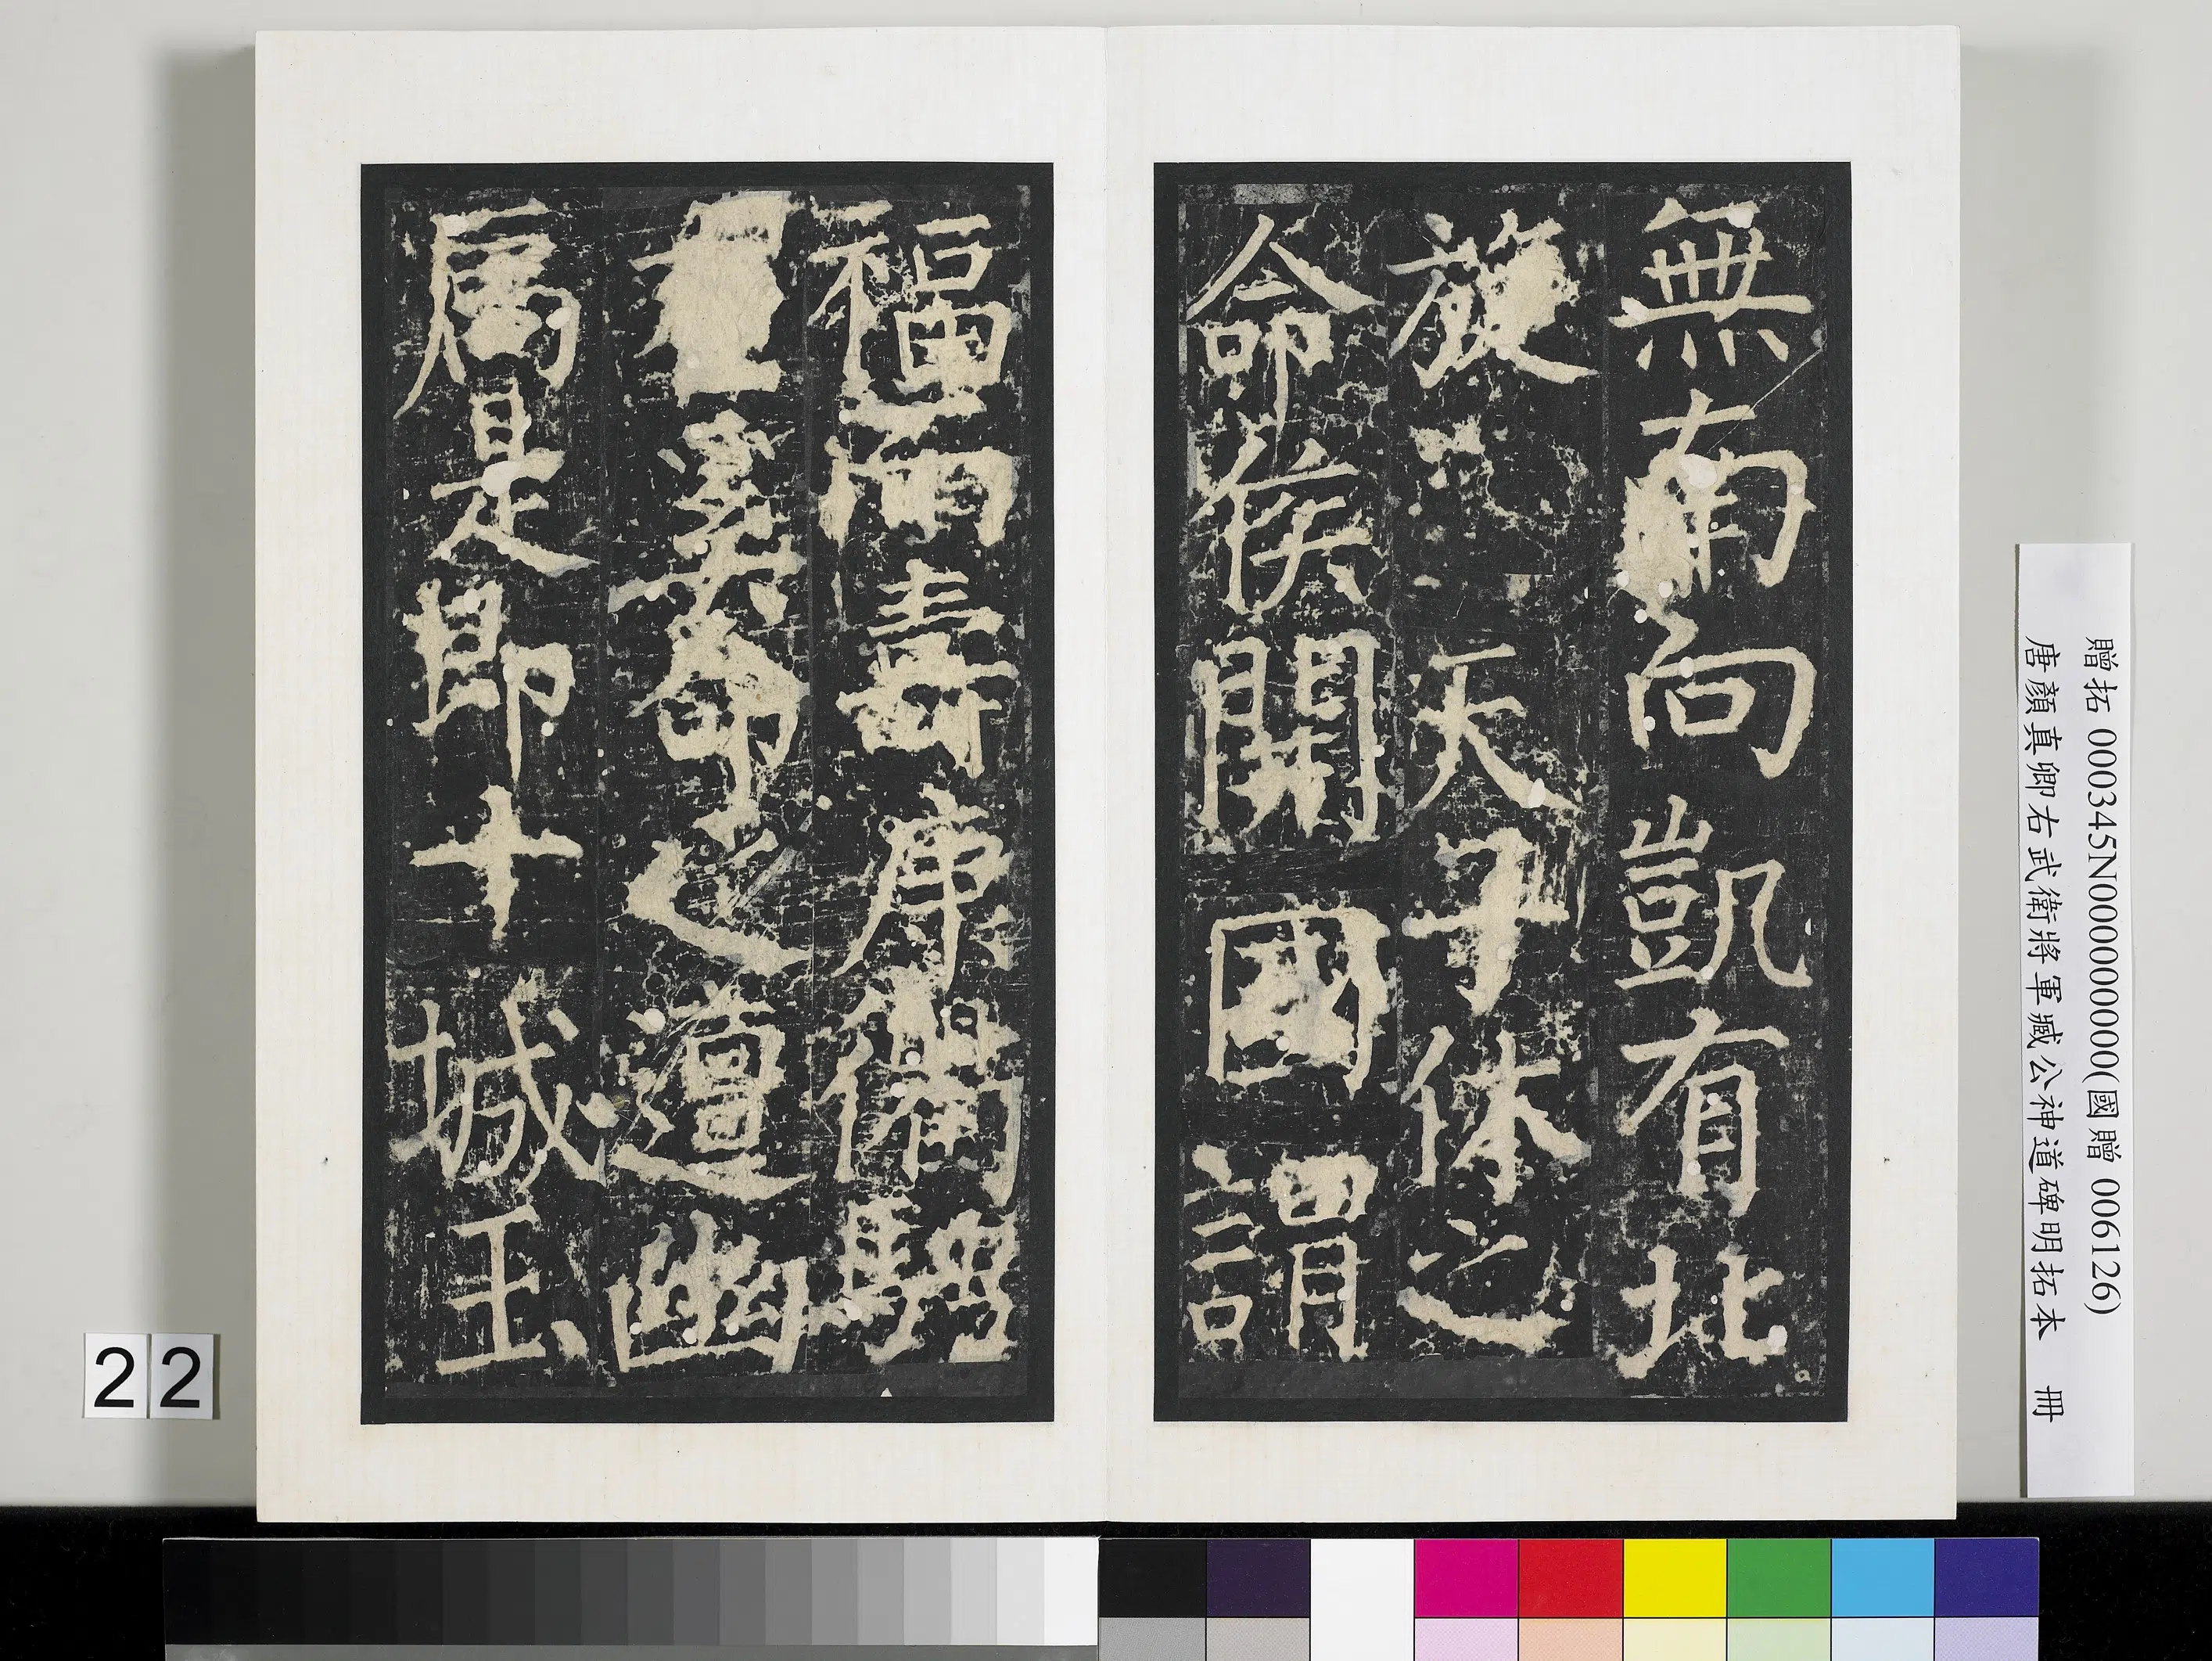 無南向凱有北
旋天子休之
命侯開國謂
福而壽康備
奚命之遭幽
是即十城玉
贈拓 000345N000000000(國贈 006126)
唐顏真卿右武衛將軍臧公神道碑明拓本 冊
22